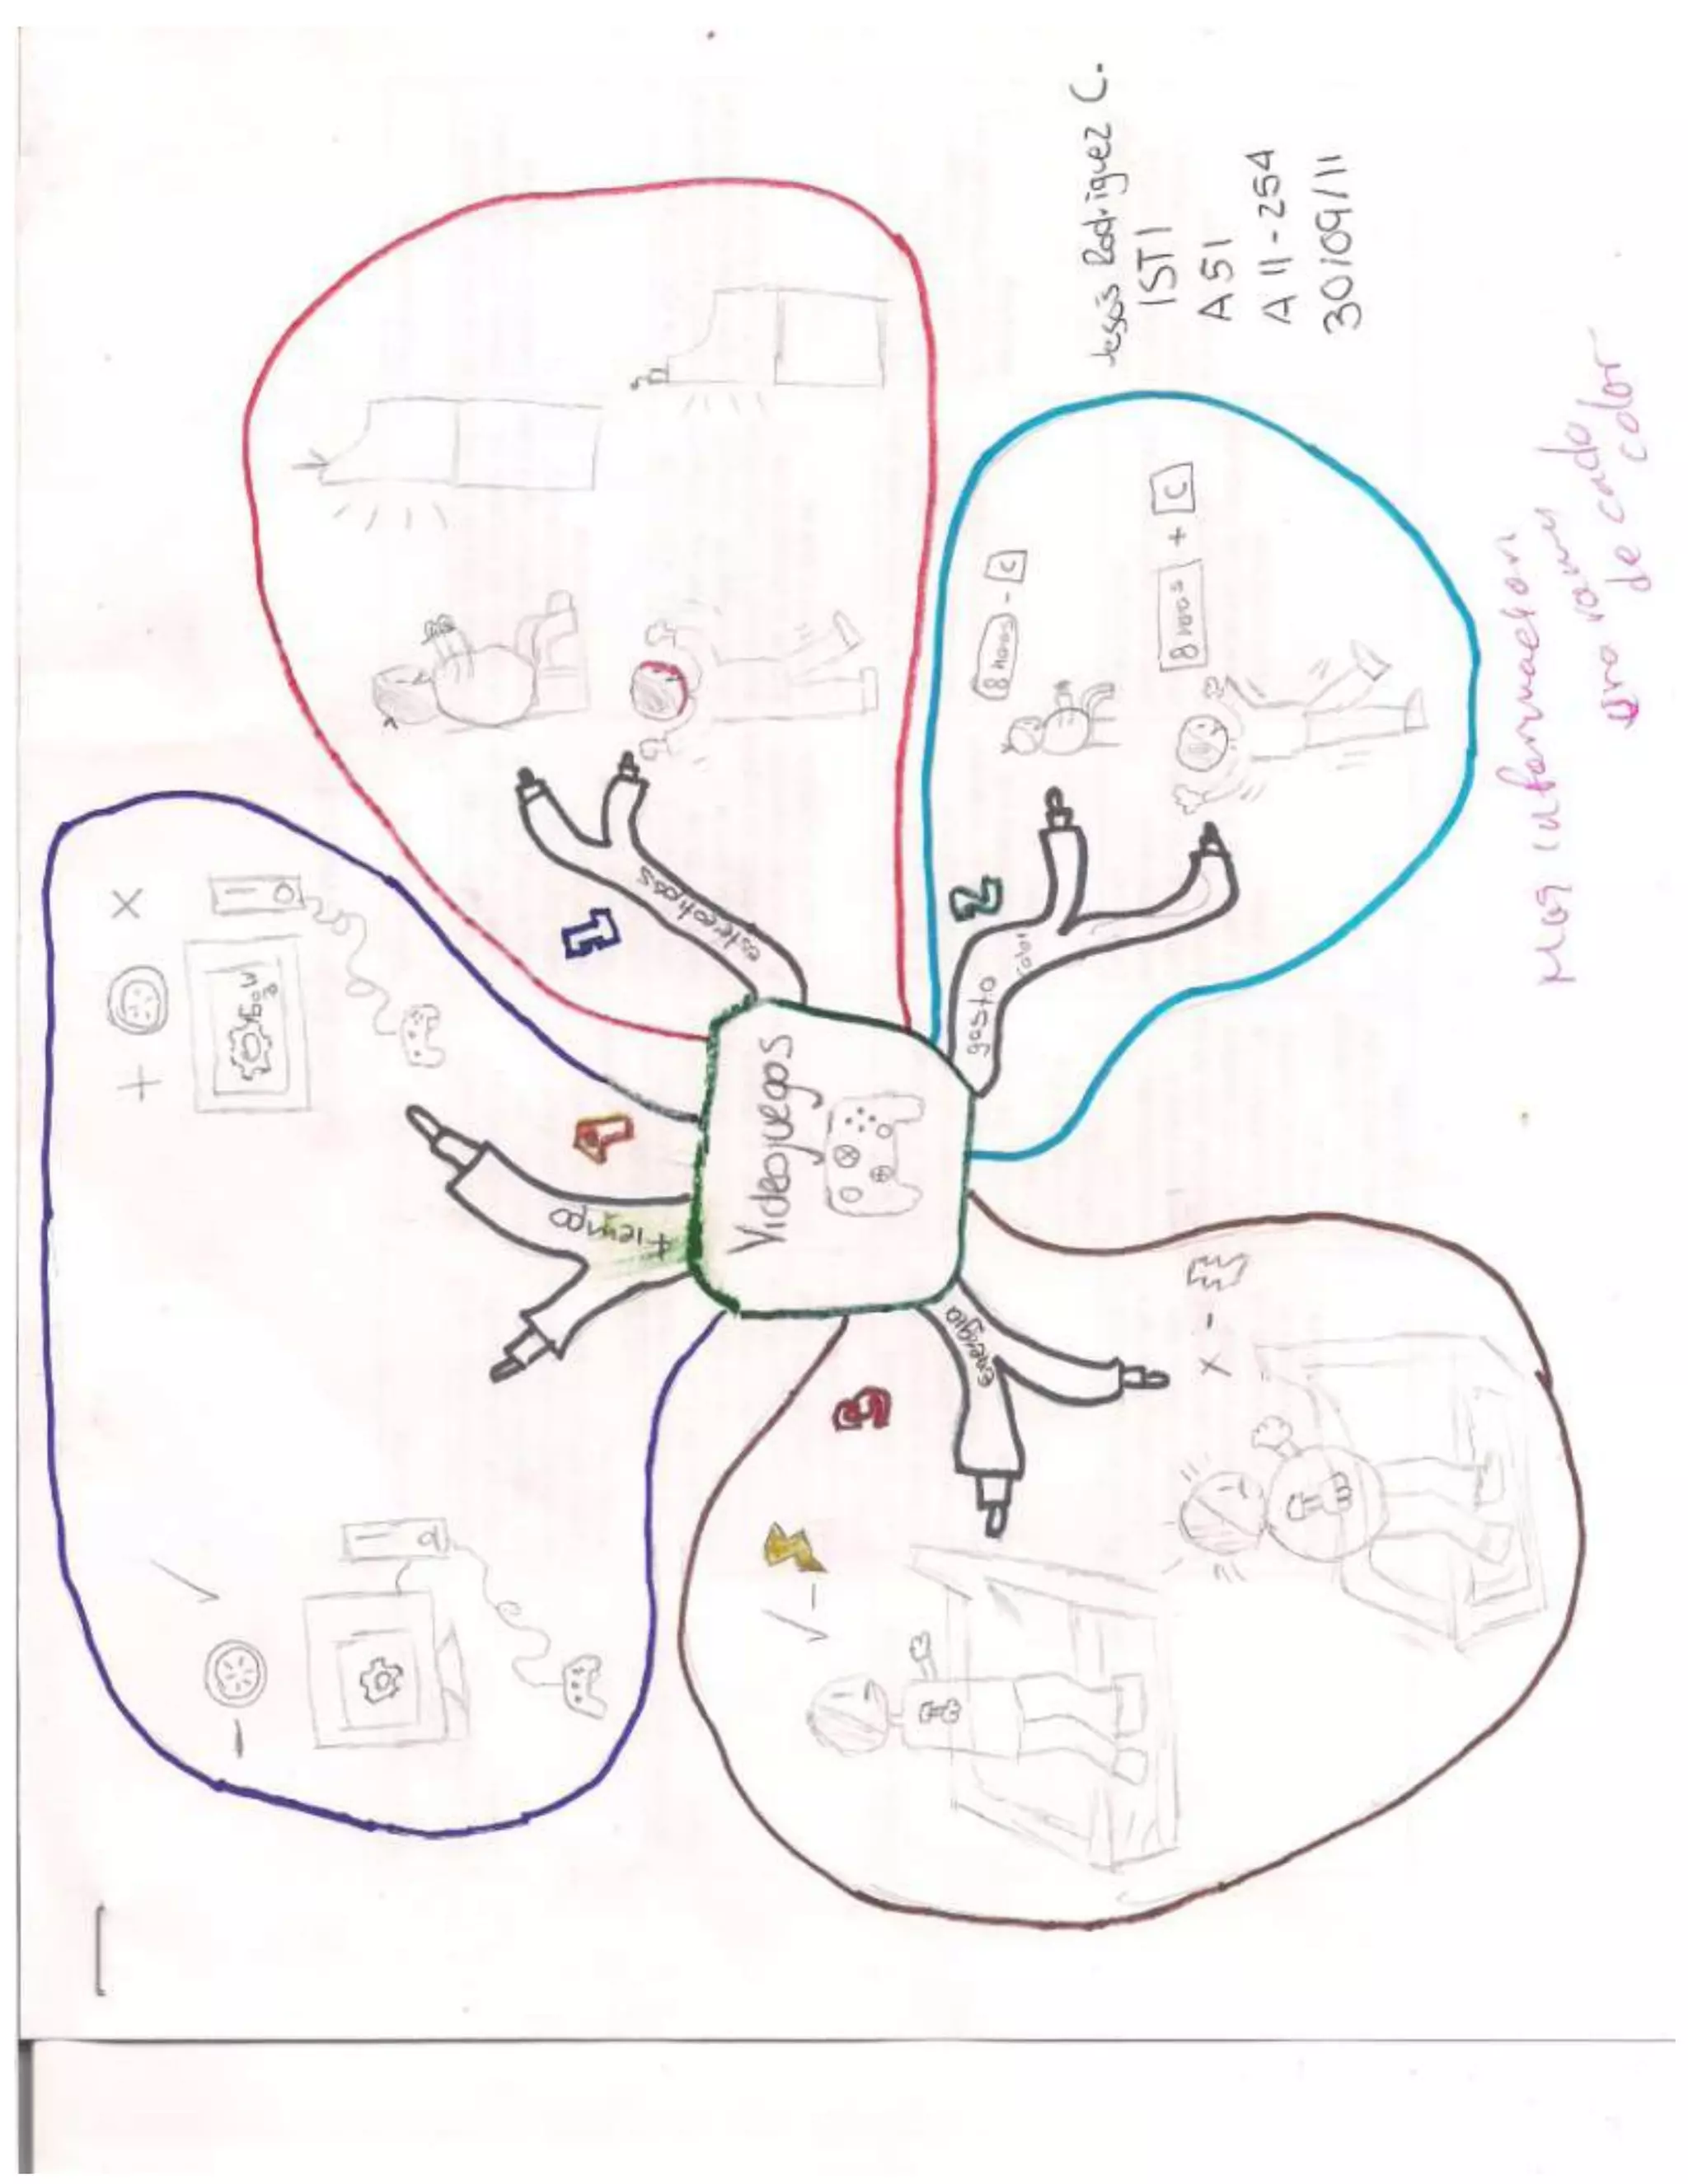 Jesús Rodríguez C.
ISTI
A51
A11-254
30/09/11
Videojuegos
1
estereotipos
2
gasto
8 horas - C
8 horas + C
3
energía
4
tiempo
+ X
- 
Mas informacion
una rama
de cada
color